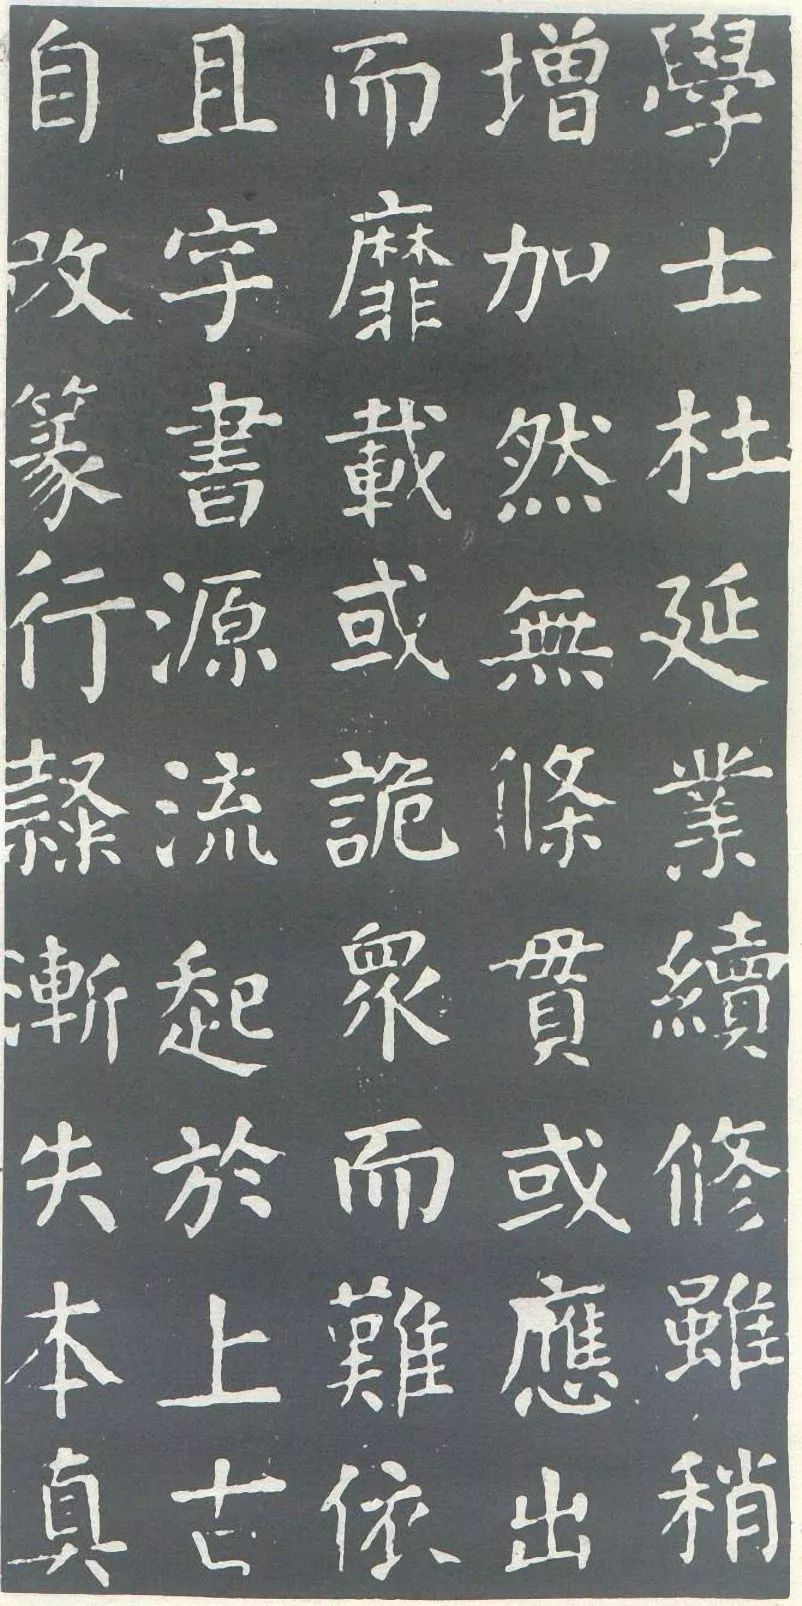 學士杜延業續修雖稍
增加然無條貫或應出
而靡載或詭眾而難依
且字書源流起於上古
自改篆行隸漸失本真